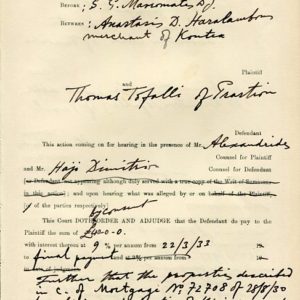 BEFORE : S. G. Mavromatis D.J.
BETWEEN : Anastasis D. Haralambou
merchant of Kontea
Plaintiff
and
Thomas Tofalli of Prastion
This action coming on for hearing in the presence of Mr. Alexandrides
Counsel for Plaintiff
and Mr. Haji Dimitri Counsel for Defendant
(or Defendant not appearing although duly served with a true copy of the Writ of Summons
in this action) ; and upon hearing what was alleged by or on behalf of the Plaintiff, (or
of the parties respectively)
by consent
This Court DOTH ORDER AND ADJUDGE that the Defendant do pay to the
Plaintiff the sum of
with interest thereon at 9 % per annum from 22/3/33
final payment
further that the properties described
in C. of Mortgage No 72708 of 28/8/30